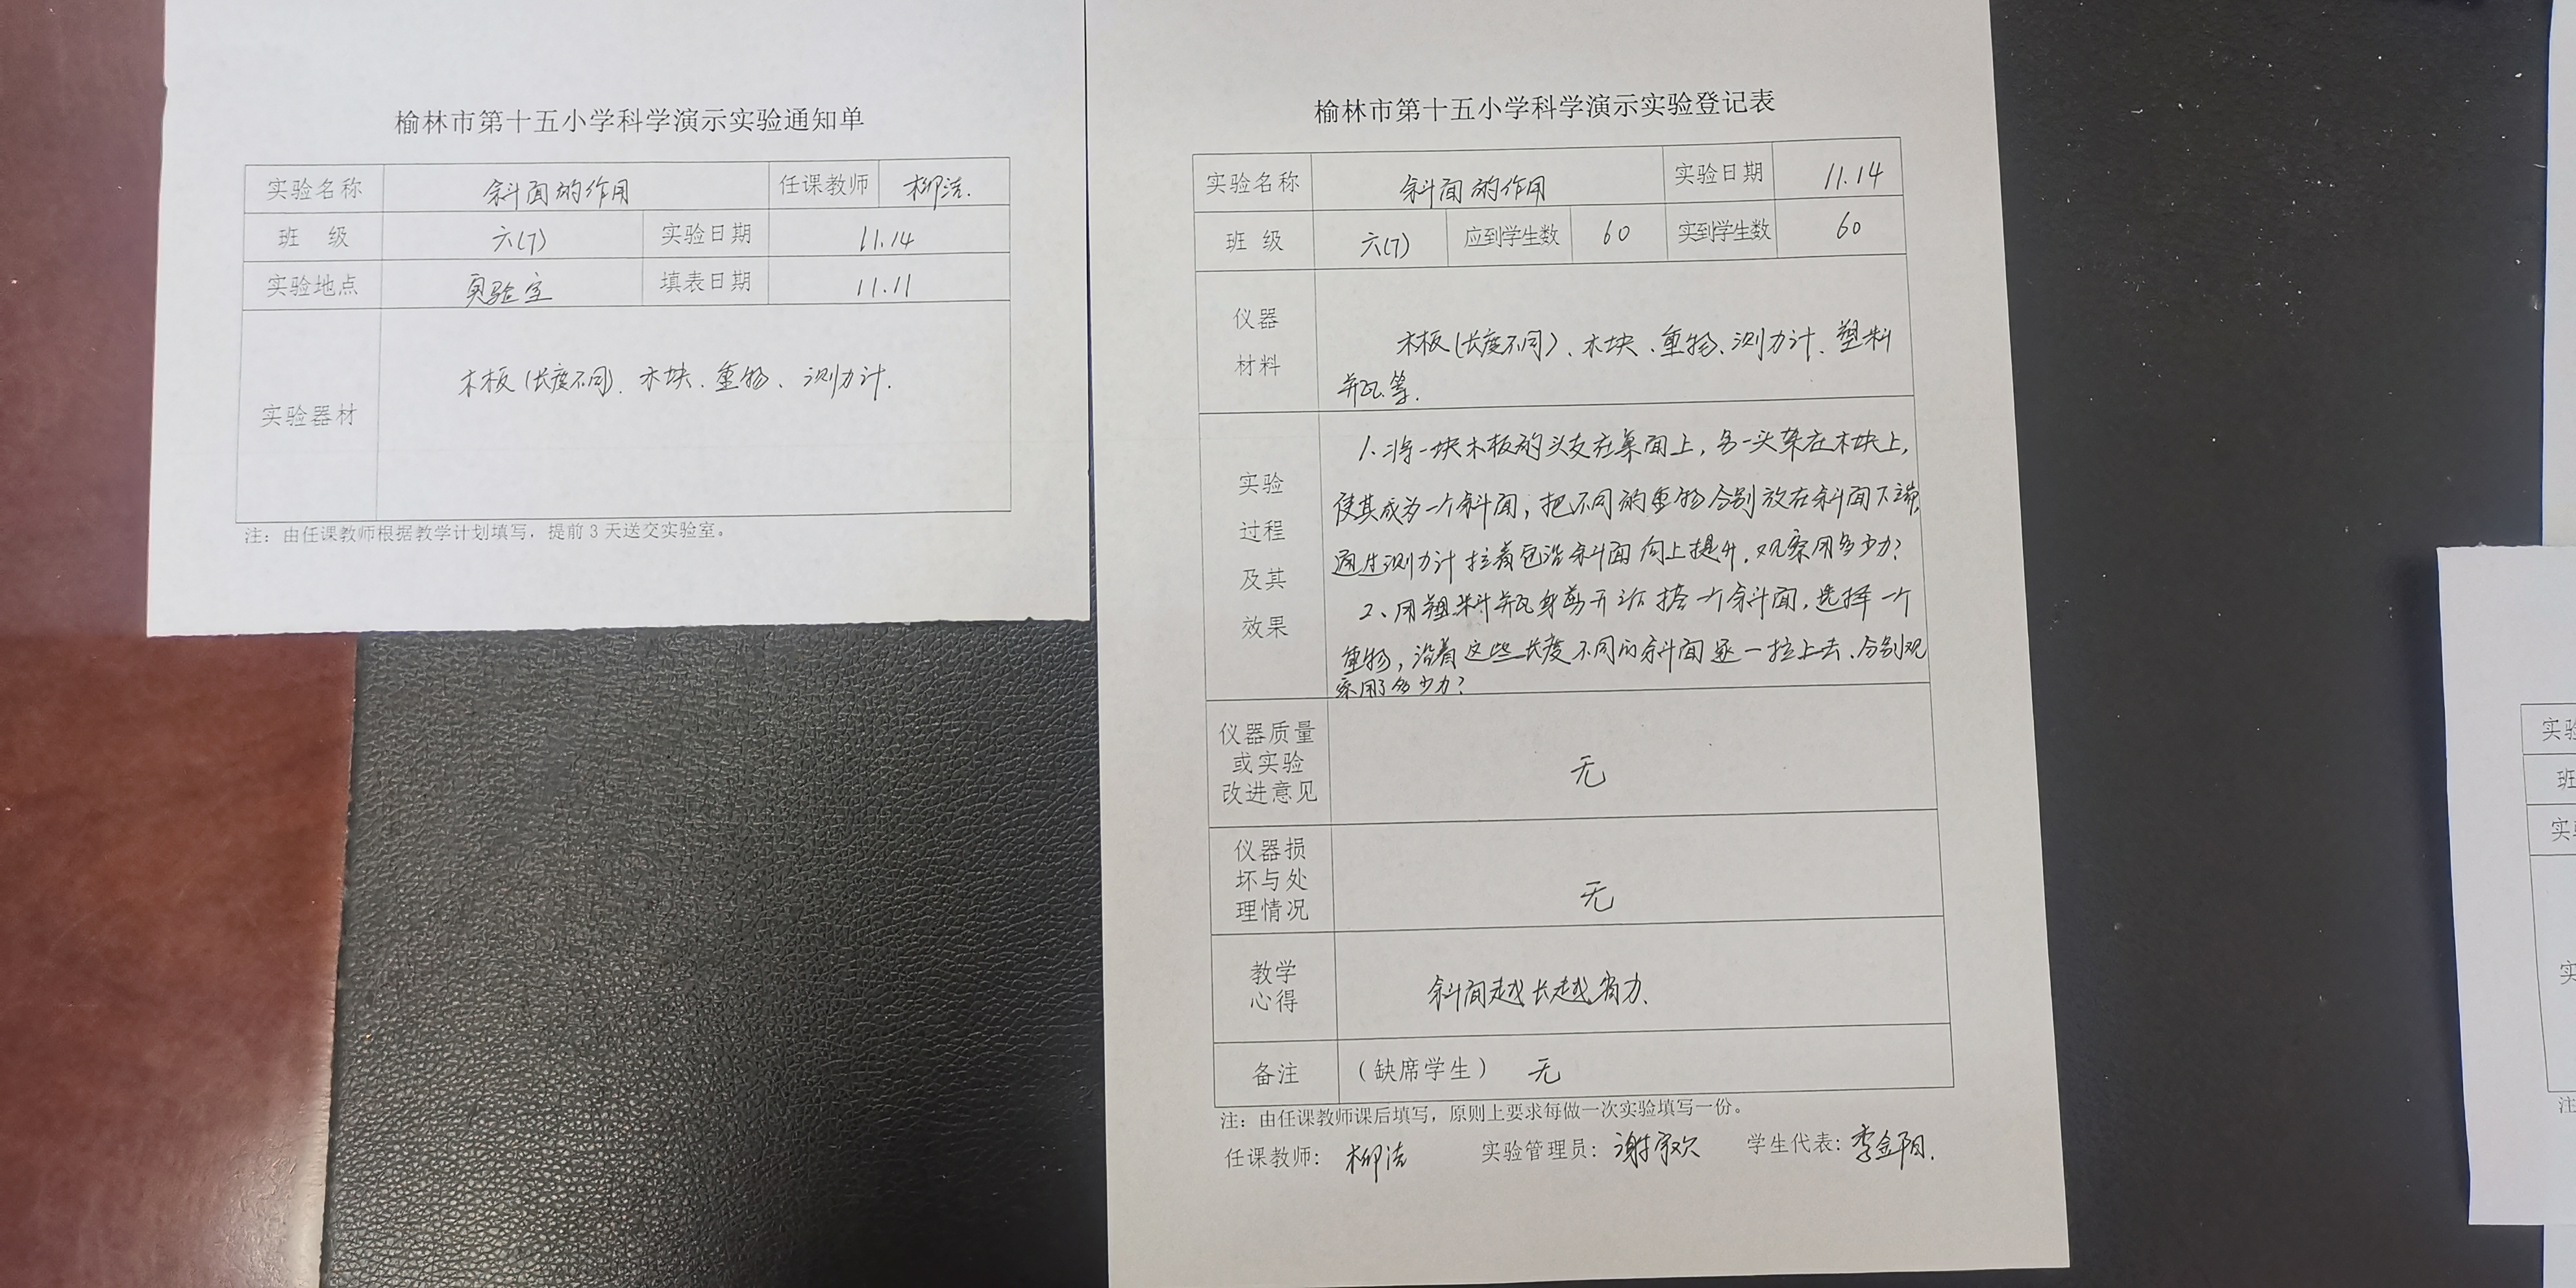 榆林市第十五小学科学演示实验通知单
实验名称 斜面的作用 任课教师 柳洁.
班 级 六(7) 实验日期 11.14
实验地点 实验室 填表日期 11.11
实验器材 木板(长度不同)、木块、重物、测力计.
注：由任课教师根据教学计划填写，提前3天送交实验室。
榆林市第十五小学科学演示实验登记表
实验名称 斜面的作用 实验日期 11.14
班 级 六(7) 应到学生数 60 实到学生数 60
仪器
材料
木板(长度不同)、木块、重物、测力计、塑料
瓶等.
实验
过程
及其
效果
1、将一块木板的头支在桌面上，另一头架在木块上，
使其成为一个斜面；把不同的重物分别放在斜面下端，
通过测力计拉着包沿斜面向上提升，观察用多少力？
2、用塑料瓶身剪开后搭一个斜面，选择一个
重物，沿着这些长度不同的斜面逐一拉上去、分别观
察用了多少力？
仪器质量
或实验
改进意见
无
仪器损
坏与处
理情况
无
教学
心得
斜面越长越省力、
备注 （缺席学生） 无
注：由任课教师课后填写，原则上要求每做一次实验填写一份。
任课教师：柳洁 实验管理员：谢家欢 学生代表：李金阳.
实验
班
实
实
注